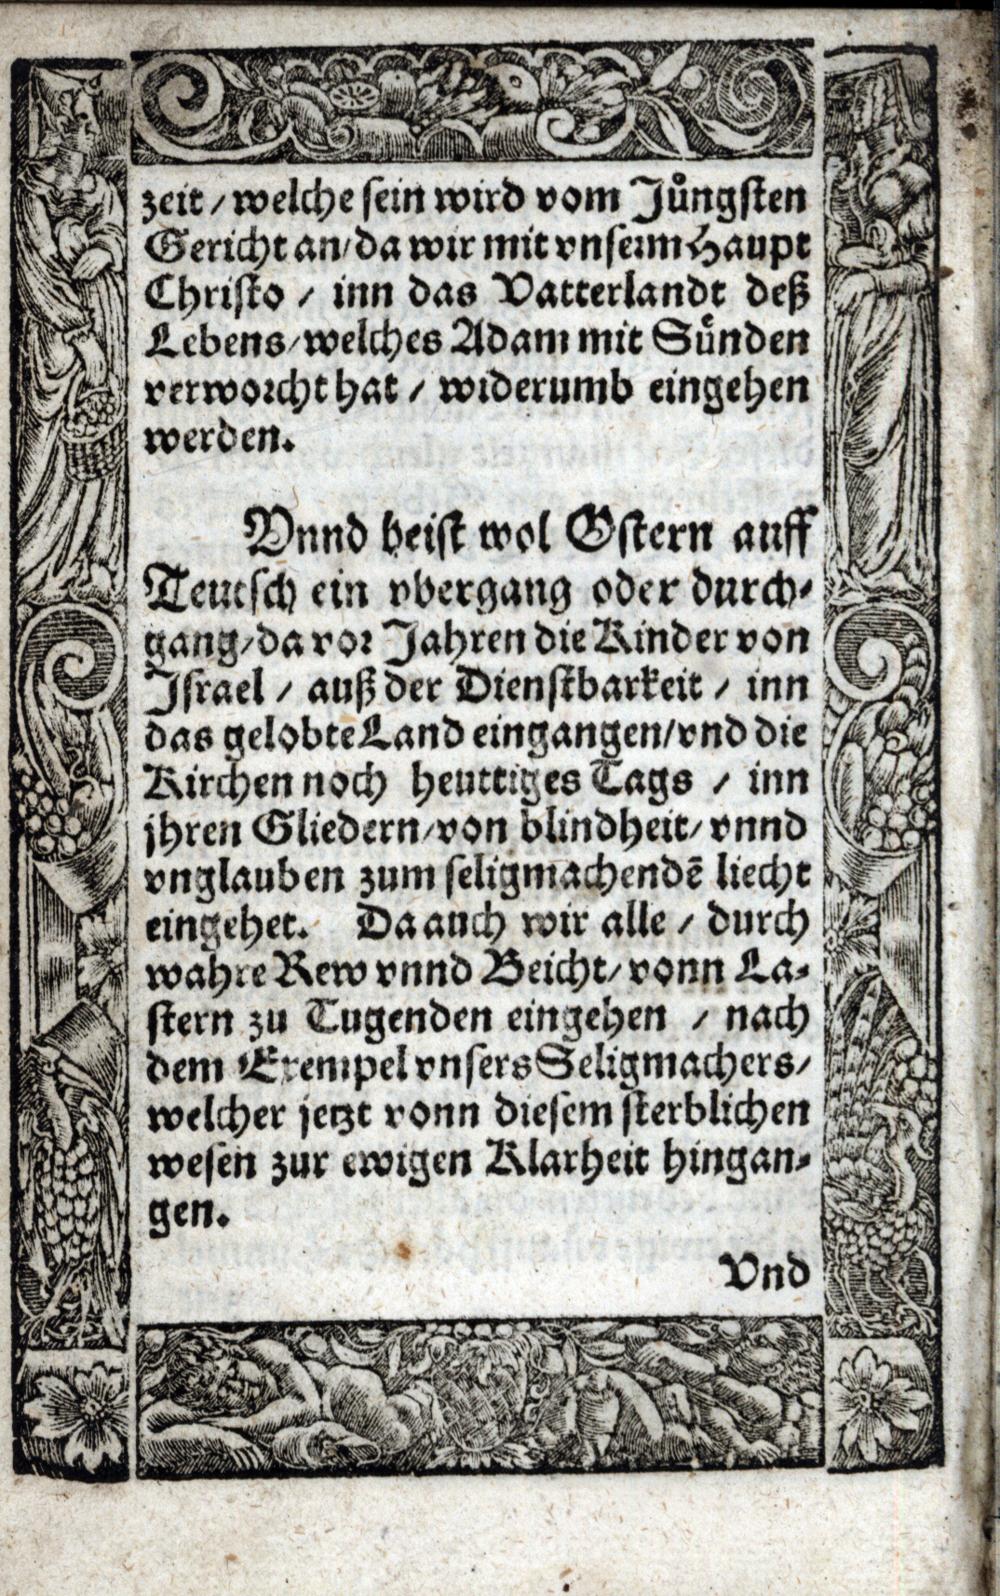 zeit / welche sein wird vom Juͤngsten
Gericht an / da wir mit vnserm Haupt
Christo / inn das Vatterlandt deß
Lebens / welches Adam mit Suͤnden
verworcht hat / widerumb eingehen
werden.
Vnnd heist wol Ostern auff
Teutsch ein vbergang oder durch-
gang / da vor Jahren die Kinder von
Israel / auß der Dienstbarkeit / inn
das gelobte Land eingangen / vnd die
Kirchen noch heuttiges Tags / inn
jhren Gliedern / von blindheit / vnnd
vnglauben zum seligmachendē liecht
eingehet. Da auch wir alle / durch
wahre Rew vnnd Beicht / vonn La-
stern zu Tugenden eingehen / nach
dem Exempel vnsers Seligmachers /
welcher jetzt vonn diesem sterblichen
wesen zur ewigen Klarheit hingan-
gen.
Vnd